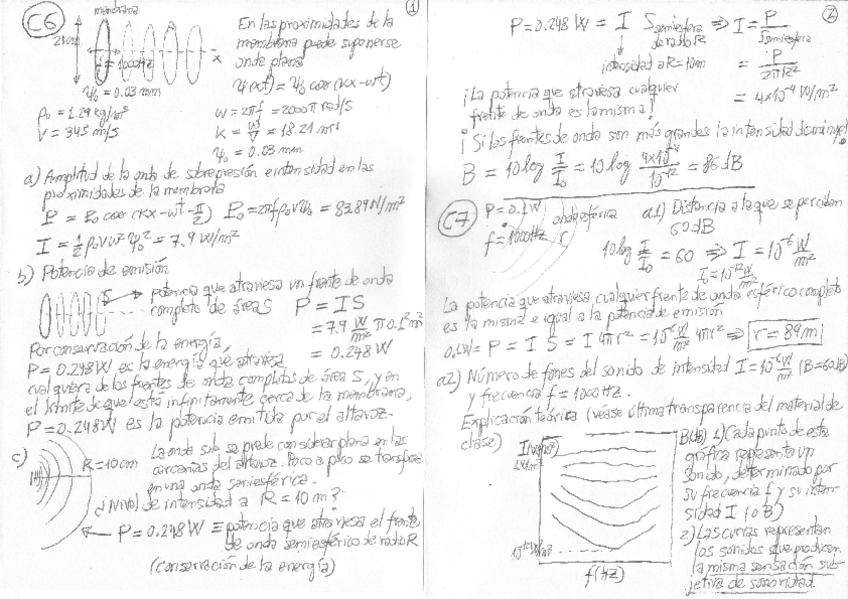 1
C6
membrana
21cm
f=1000Hz
x
Ψ₀ = 0.03 mm
En las proximidades de la
membrana puede suponerse
onda plana
Ψ(x,t) = Ψ₀ cos(kx-ωt)
ρ₀ = 1.29 kg/m³
V = 345 m/s
ω = 2πf = 2000π rad/s
K = ω/V = 18.21 m⁻¹
Ψ₀ = 0.03 mm
a) Amplitud de la onda de sobrepresión e intensidad en las
proximidades de la membrana
P = P₀ cos(kx-ωt-π/2) P₀ = 2πfρ₀VΨ₀ = 83.89 N/m²
I = ½ρ₀Vω²Ψ₀² = 7.9 W/m²
b) Potencia de emisión
S
potencia que atraviesa un frente de onda
completo de área S P = I S
= 7.9 W/m² π 0.1² m²
= 0.248 W
Por conservación de la energía
P = 0.248 W es la energía que atraviesa
cualquiera de los frentes de onda completos de área S, y en
el límite de que está infinitamente cerca de la membrana,
P = 0.248 W es la potencia emitida por el altavoz.
c)
R = 10 m
La onda sólo se puede considerar plana en las
cercanías del altavoz. Poco a poco se transforma
en una onda semiesférica.
¿Nivel de intensidad a R = 10 m?
P = 0.248 W ≡ potencia que atraviesa el frente
de onda semiesférico de radio R
(conservación de la energía)
2
P = 0.248 W = I S semiesfera de radio R ⇒ I = P/S semiesfera
intensidad a R = 10 m
= P/2πR²
= 4×10⁻⁴ W/m²
¡La potencia que atraviesa cualquier
frente de onda es la misma!
¡Si los frentes de onda son más grandes la intensidad disminuye!
B = 10 log I/I₀ = 10 log 4×10⁻⁴/10⁻¹² = 86 dB
C7
P = 0.1 W
f = 1000 Hz
r
onda esférica
a1) Distancia a la que se perciban
60 dB
10 log I/I₀ = 60 ⇒ I = 10⁻⁶ W/m²
I₀ = 10⁻¹² W/m²
La potencia que atraviesa cualquier frente de onda esférico completo
es la misma e igual a la potencia de emisión
0.1W = P = I S = I 4πr² = 10⁻⁶ W/m² 4πr² ⇒ r = 89 m
a2) Número de fones del sonido de intensidad I = 10⁻⁶ W/m² (B=60dB)
y frecuencia f = 1000 Hz.
Explicación teórica (véase última transparencia del material de
clase)
I(W/m²)
1 W/m²
10⁻¹² W/m²
f(Hz)
B(dB)
1) Cada punto de esta
gráfica representa un
sonido, determinado por
su frecuencia f y su inten-
sidad I (o B)
2) Las curvas representan
los sonidos que producen
la misma sensación sub-
jetiva de sonoridad.